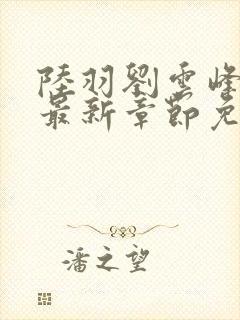 陸羽劉雲峰
最新章節免
潘之望